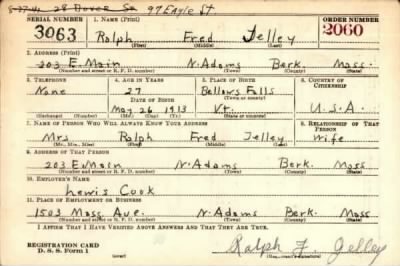 8-27-41 28 Dover Sq 97 Eagle St.
SERIAL NUMBER 1. NAME (Print) ORDER NUMBER
3063 Ralph Fred Jelley 2060
(First) (Middle) (Last)
2. ADDRESS (Print)
203 E. Main N. Adams Berk. Mass.
(Number and street or R. F. D. number) (Town) (County) (State)
3. TELEPHONE 4. AGE IN YEARS 5. PLACE OF BIRTH 6. COUNTRY OF CITIZENSHIP
None 27 Bellows Falls
DATE OF BIRTH (Town or county)
May 26 1913 Vt. U.S.A
(Exchange) (Number) (Mo.) (Day) (Yr.) (State or country)
7. NAME OF PERSON WHO WILL ALWAYS KNOW YOUR ADDRESS 8. RELATIONSHIP OF THAT PERSON
Mrs Ralph Fred Jelley Wife
(Mr., Mrs., Miss) (First) (Middle) (Last)
9. ADDRESS OF THAT PERSON
203 E Main N. Adams Berk. Mass
(Number and street or R. F. D. number) (Town) (County) (State)
10. EMPLOYER'S NAME
Lewis Cook
11. PLACE OF EMPLOYMENT OR BUSINESS
1503 Mass Ave. N. Adams Berk Mass
(Number and street or R. F. D. number) (Town) (County) (State)
I AFFIRM THAT I HAVE VERIFIED ABOVE ANSWERS AND THAT THEY ARE TRUE.
REGISTRATION CARD
D. S. S. Form 1
Ralph F. Jelley